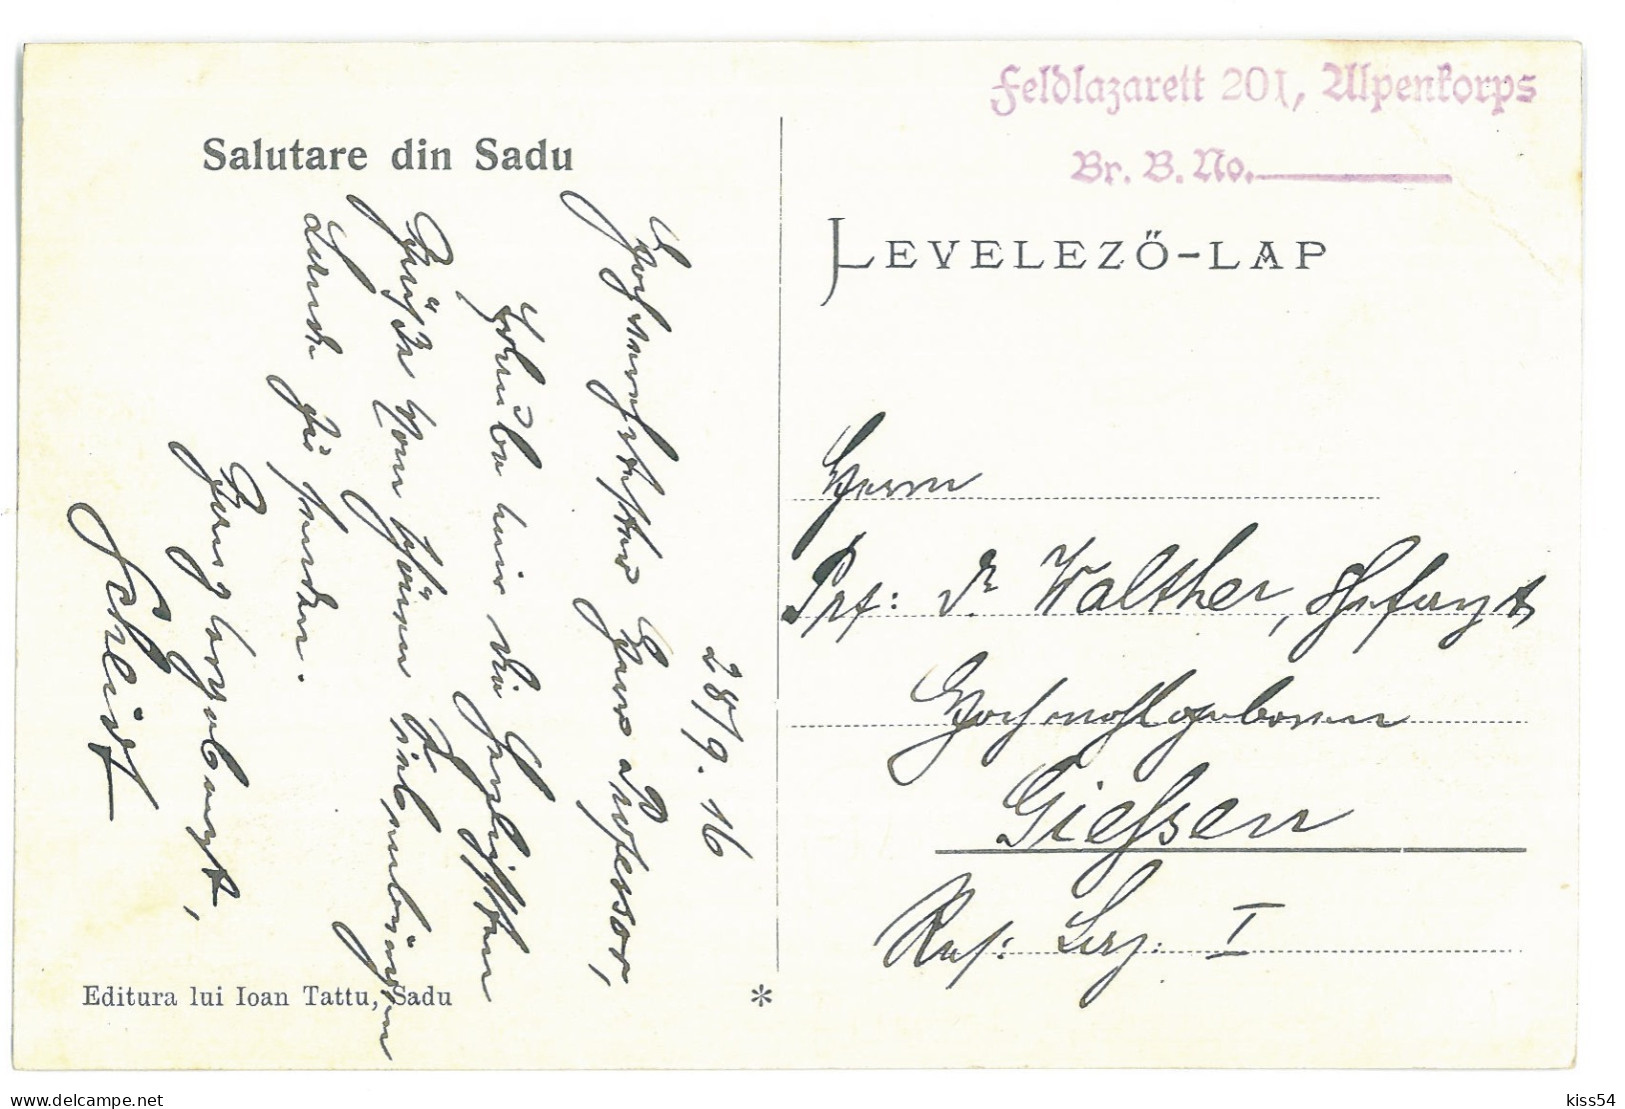 Feldlazarett 201, Alpenkorps
Br. B. No.
Salutare din Sadu
LEVELEZŐ-LAP
28/9.16
Hochverehrter Herr Professor,
Erlaube mir die herzlichsten
Grüße vom schönen Siebenbürgen
Lande zu senden.
Ganz ergebenst,
Herrn
Prof: Dr Walther, Chefarzt
Hochwohlgeboren
Giessen
Res: Laz: I
Editura lui Ioan Tattu, Sadu
*
delcampe.net
kiss54